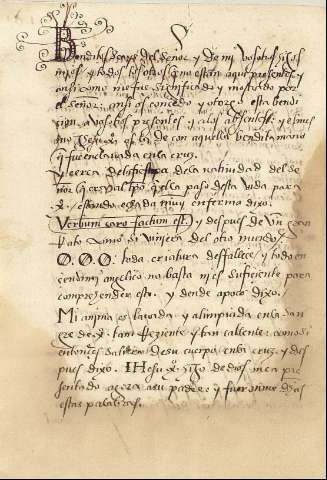 Benditos seays del señor y de mi vosotros hijos
mios y todos los otros que no estan aqui presentes y
ansi como me fue significada y mostrado por
el señor: ansi os concedo y otorgo esta bendi
cion a vosotros presentes y a los absentes: y el mes
mo de con aquella bendita mano
que fue enclavada en la cruz.
Y cerca de la fiesta dela natividad del se
ñor que era el tpo que ella paso desta vida para
.X. estando echada muy enferma dixo.
Verbum caro factum est. y despues de un gran
rato como si viniera del otro mundo
O. O. O. toda criatura desfallece y todo en
tendimiento angelico no basta ni es suficiente para
comprehender esto. y dende a poco dixo.
Mi anima es lavada y alimpiada en la san
gre de .X. tam reziente y tan caliente: como si
entonces saliera de su cuerpo en la cruz. y des
pues dixo. IHesu .X. hijo de dios me a pre
sentado agora a su padre: y fueronme dichas
estas palabras.